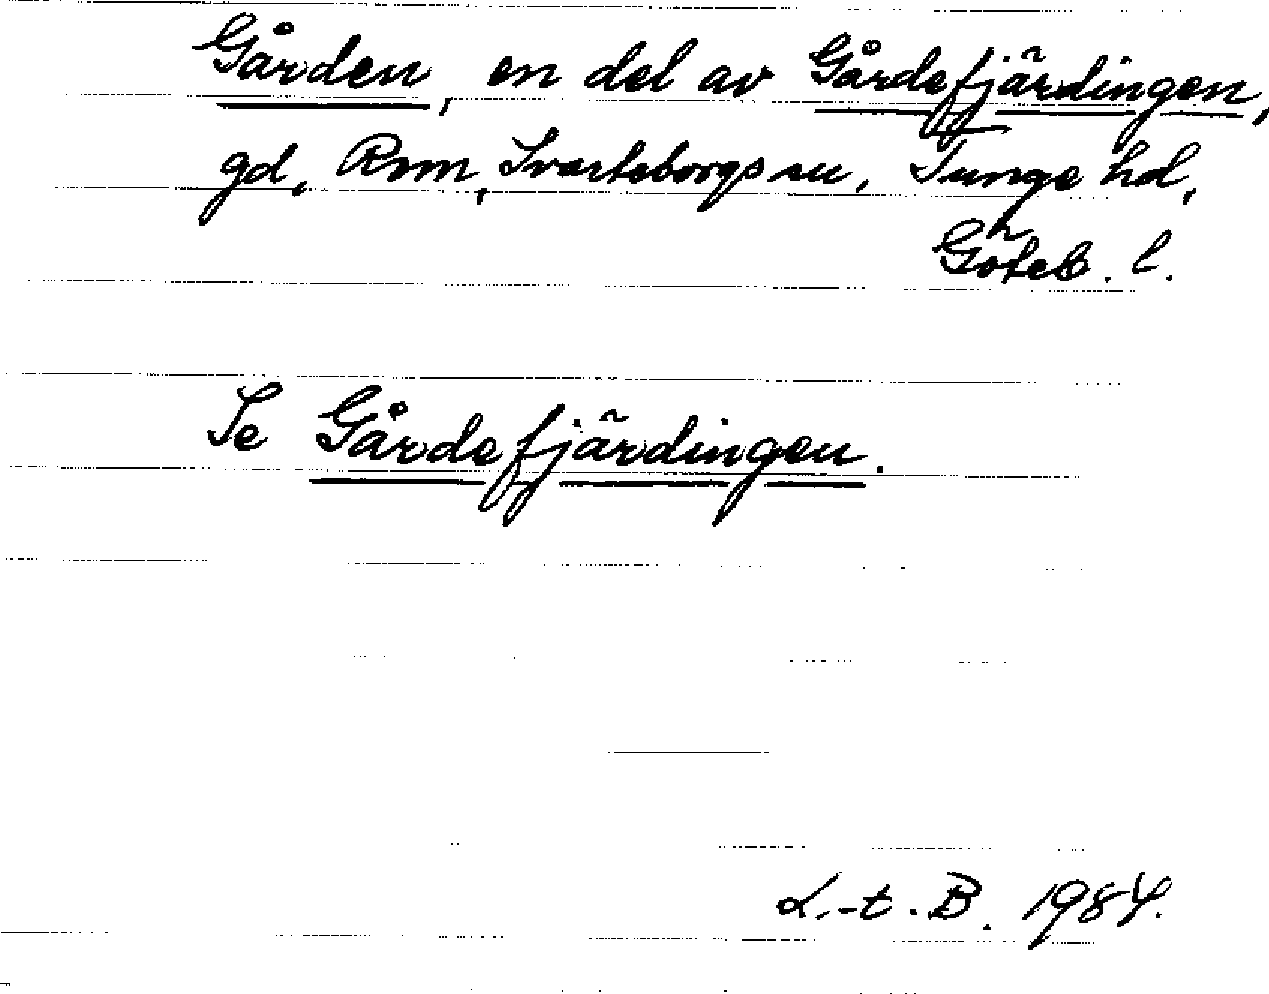 Gården, en del av Gårdefjärdingen,
gd, Rom, Svarteborgs sn, Tunge hd,
Göteb. l.
Se Gårdefjärdingen.
L.-t. B. 1984.